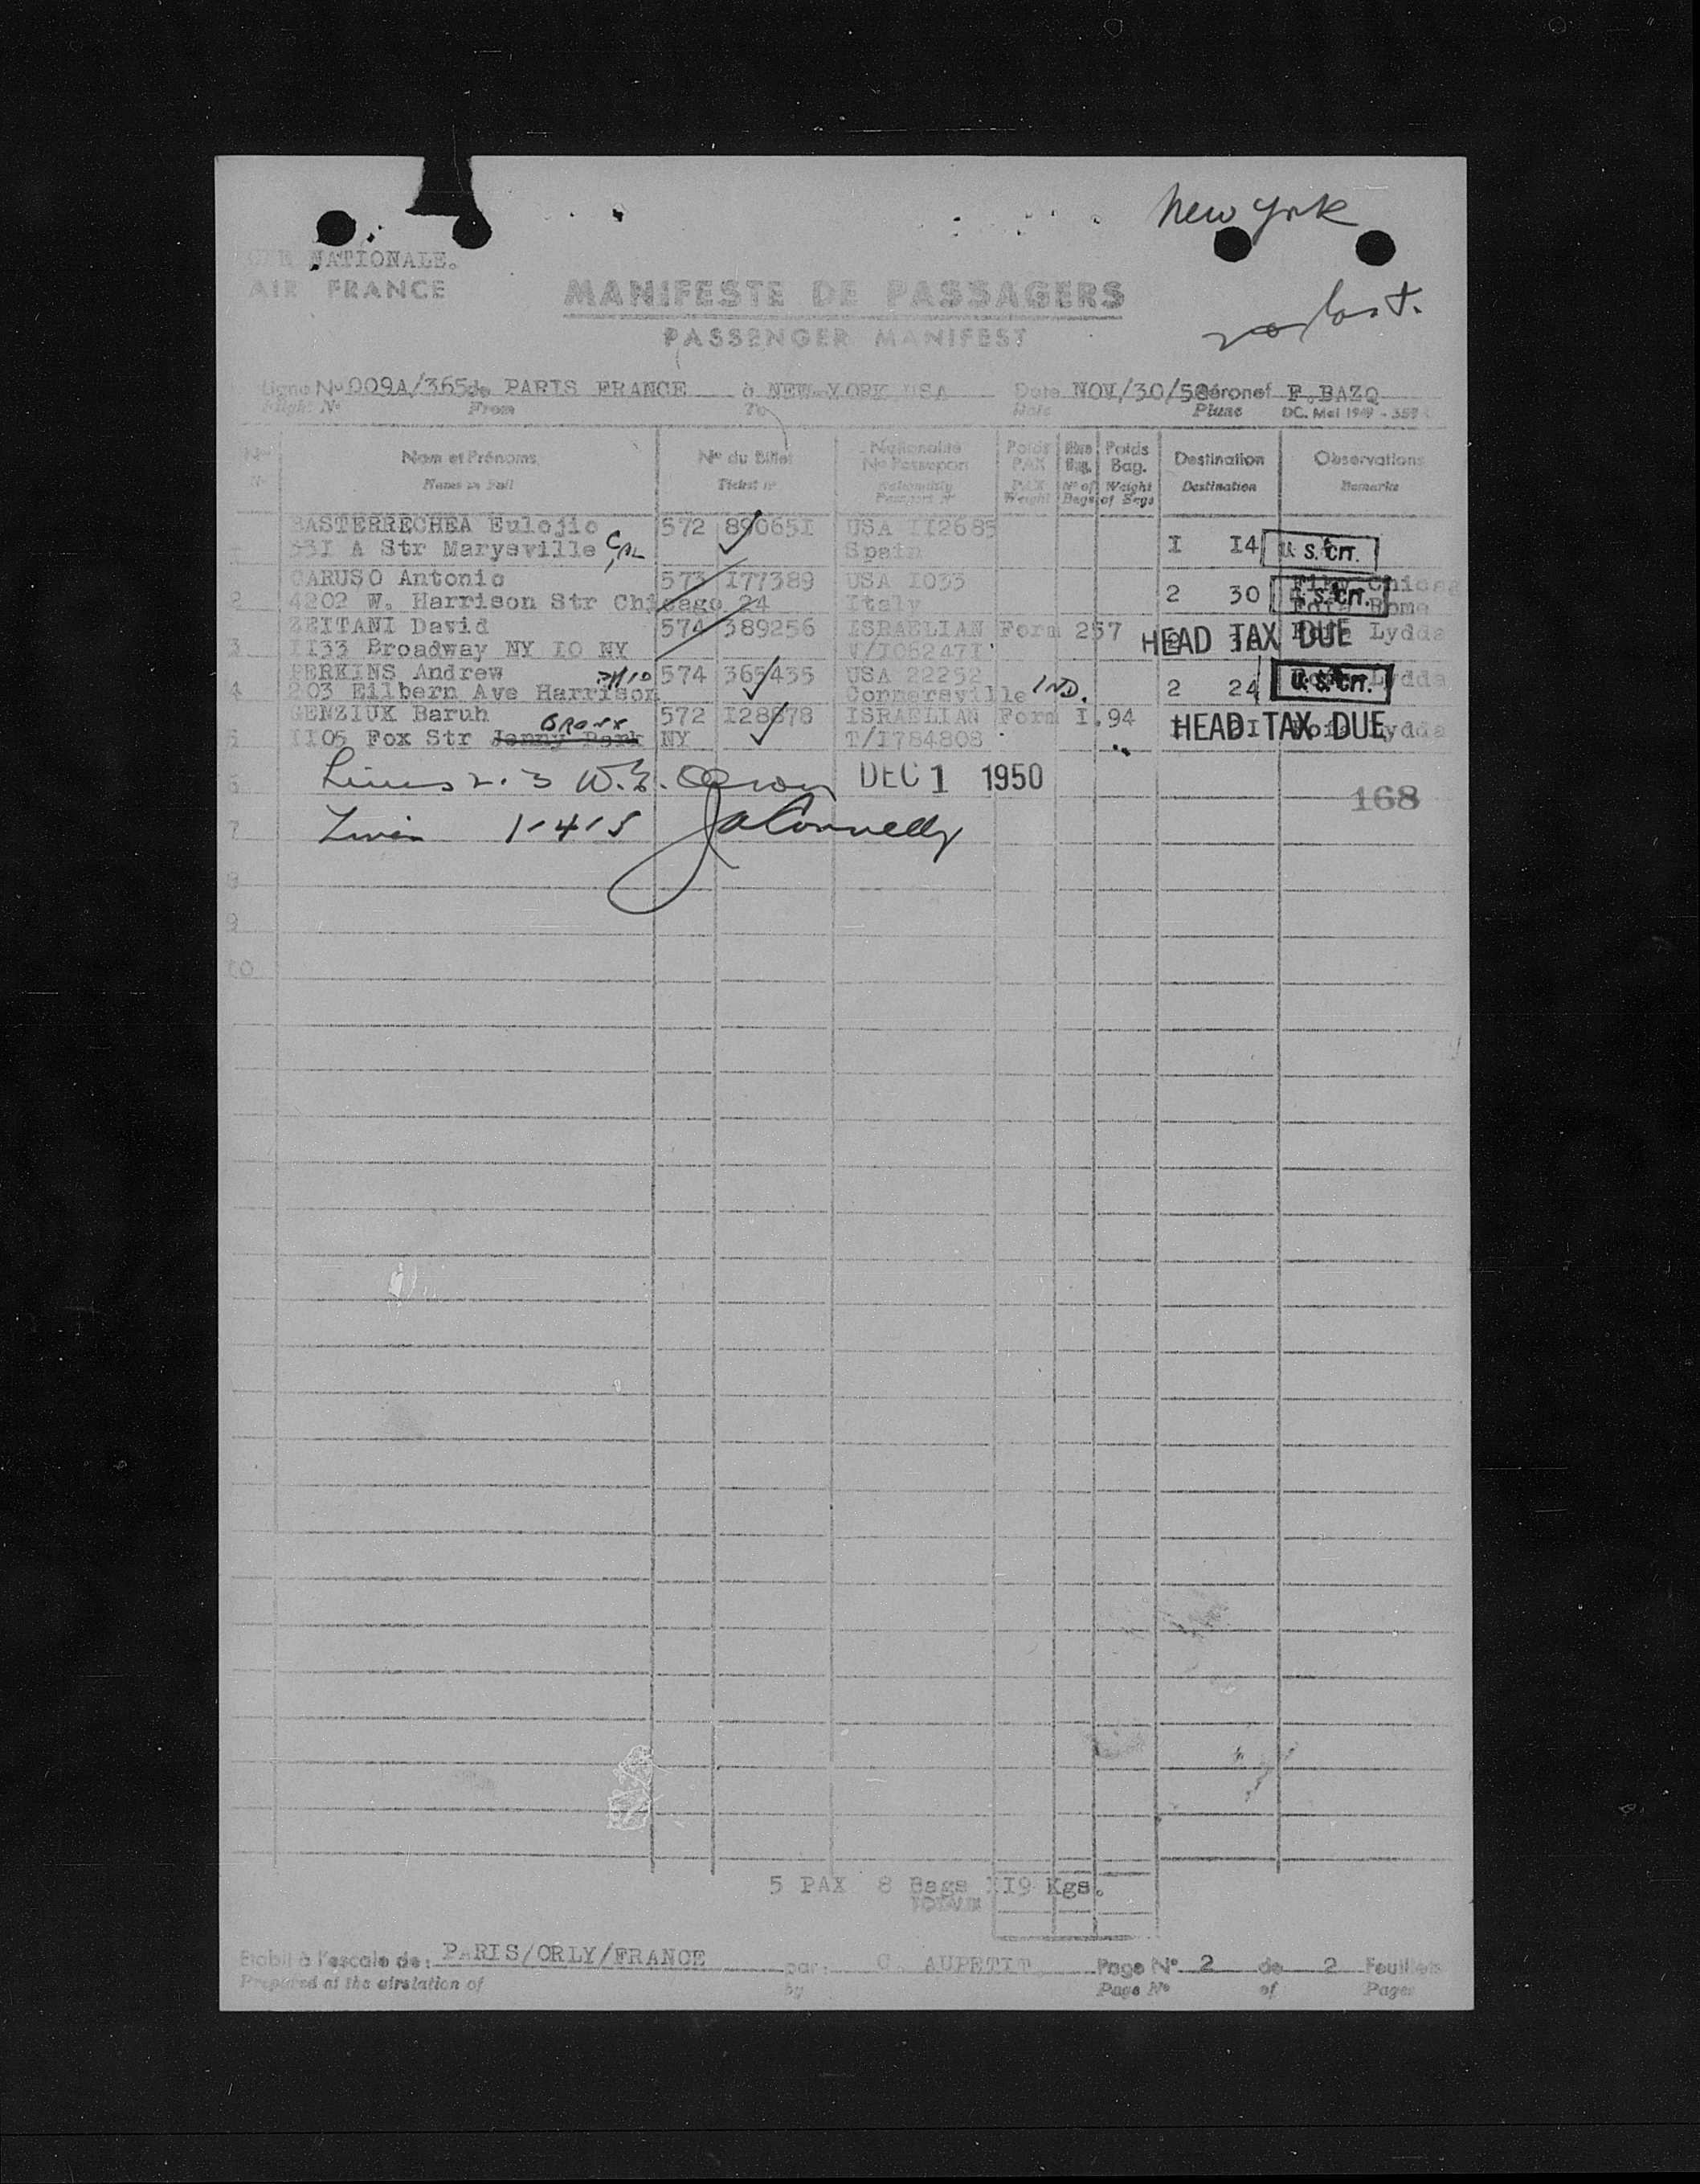 New York
NATIONALE.
AIR FRANCE
MANIFESTE DE PASSAGERS
PASSENGER MANIFEST
Ligne No 009A/365 de PARIS FRANCE à NEW-YORK USA Date NOV/30/50 Aéronef F.BAZQ
Flight No From To Date Plane DC. Mai 1949 - 357
No Nom et Prénoms No du Billet Nationalité No Passeport Poids PAX Nbre Bag. Poids Bag. Destination Observations
No Names in Full Ticket no Nationality Passport No PAX Weight No of Bags Weight of Bags Destination Remarks
BASTERRECHEA Eulojio 572 890651 USA II2685
1 331 A Str Marysville CAL Spain I I4 U.S. CIT.
CARUSO Antonio 573 I77389 USA I033 Chicag
2 4202 W. Harrison Str Chicago 24 Italy 2 30 U.S. CIT. Rome
ZEITANI David 574 389256 ISRAELIAN Form 257 HEAD TAX DUE Lydda
3 II33 Broadway NY IO NY V/I052471
PERKINS Andrew OHIO 574 365435 USA 22252 Lydda
4 203 Eilbern Ave Harrison Connersville IND. 2 24 U.S. CIT.
GENZIUK Baruh BRONX 572 I28878 ISRAELIAN Form I.94 HEAD TAX DUE Lydda
5 II05 Fox Str Jenny Park NY T/I784808
6 Lines 2-3 W.E. DEC 1 1950
168
7 Lines 1-4-5 JA Connelly
8
9
10
5 PAX 8 Bags II9 Kgs.
TOTAUX
Etabli à l'escale de: PARIS/ORLY/FRANCE par: C. AUPETIT Page No 2 de 2 Feuillets
Prepared at the airstation of by Page No of Pages